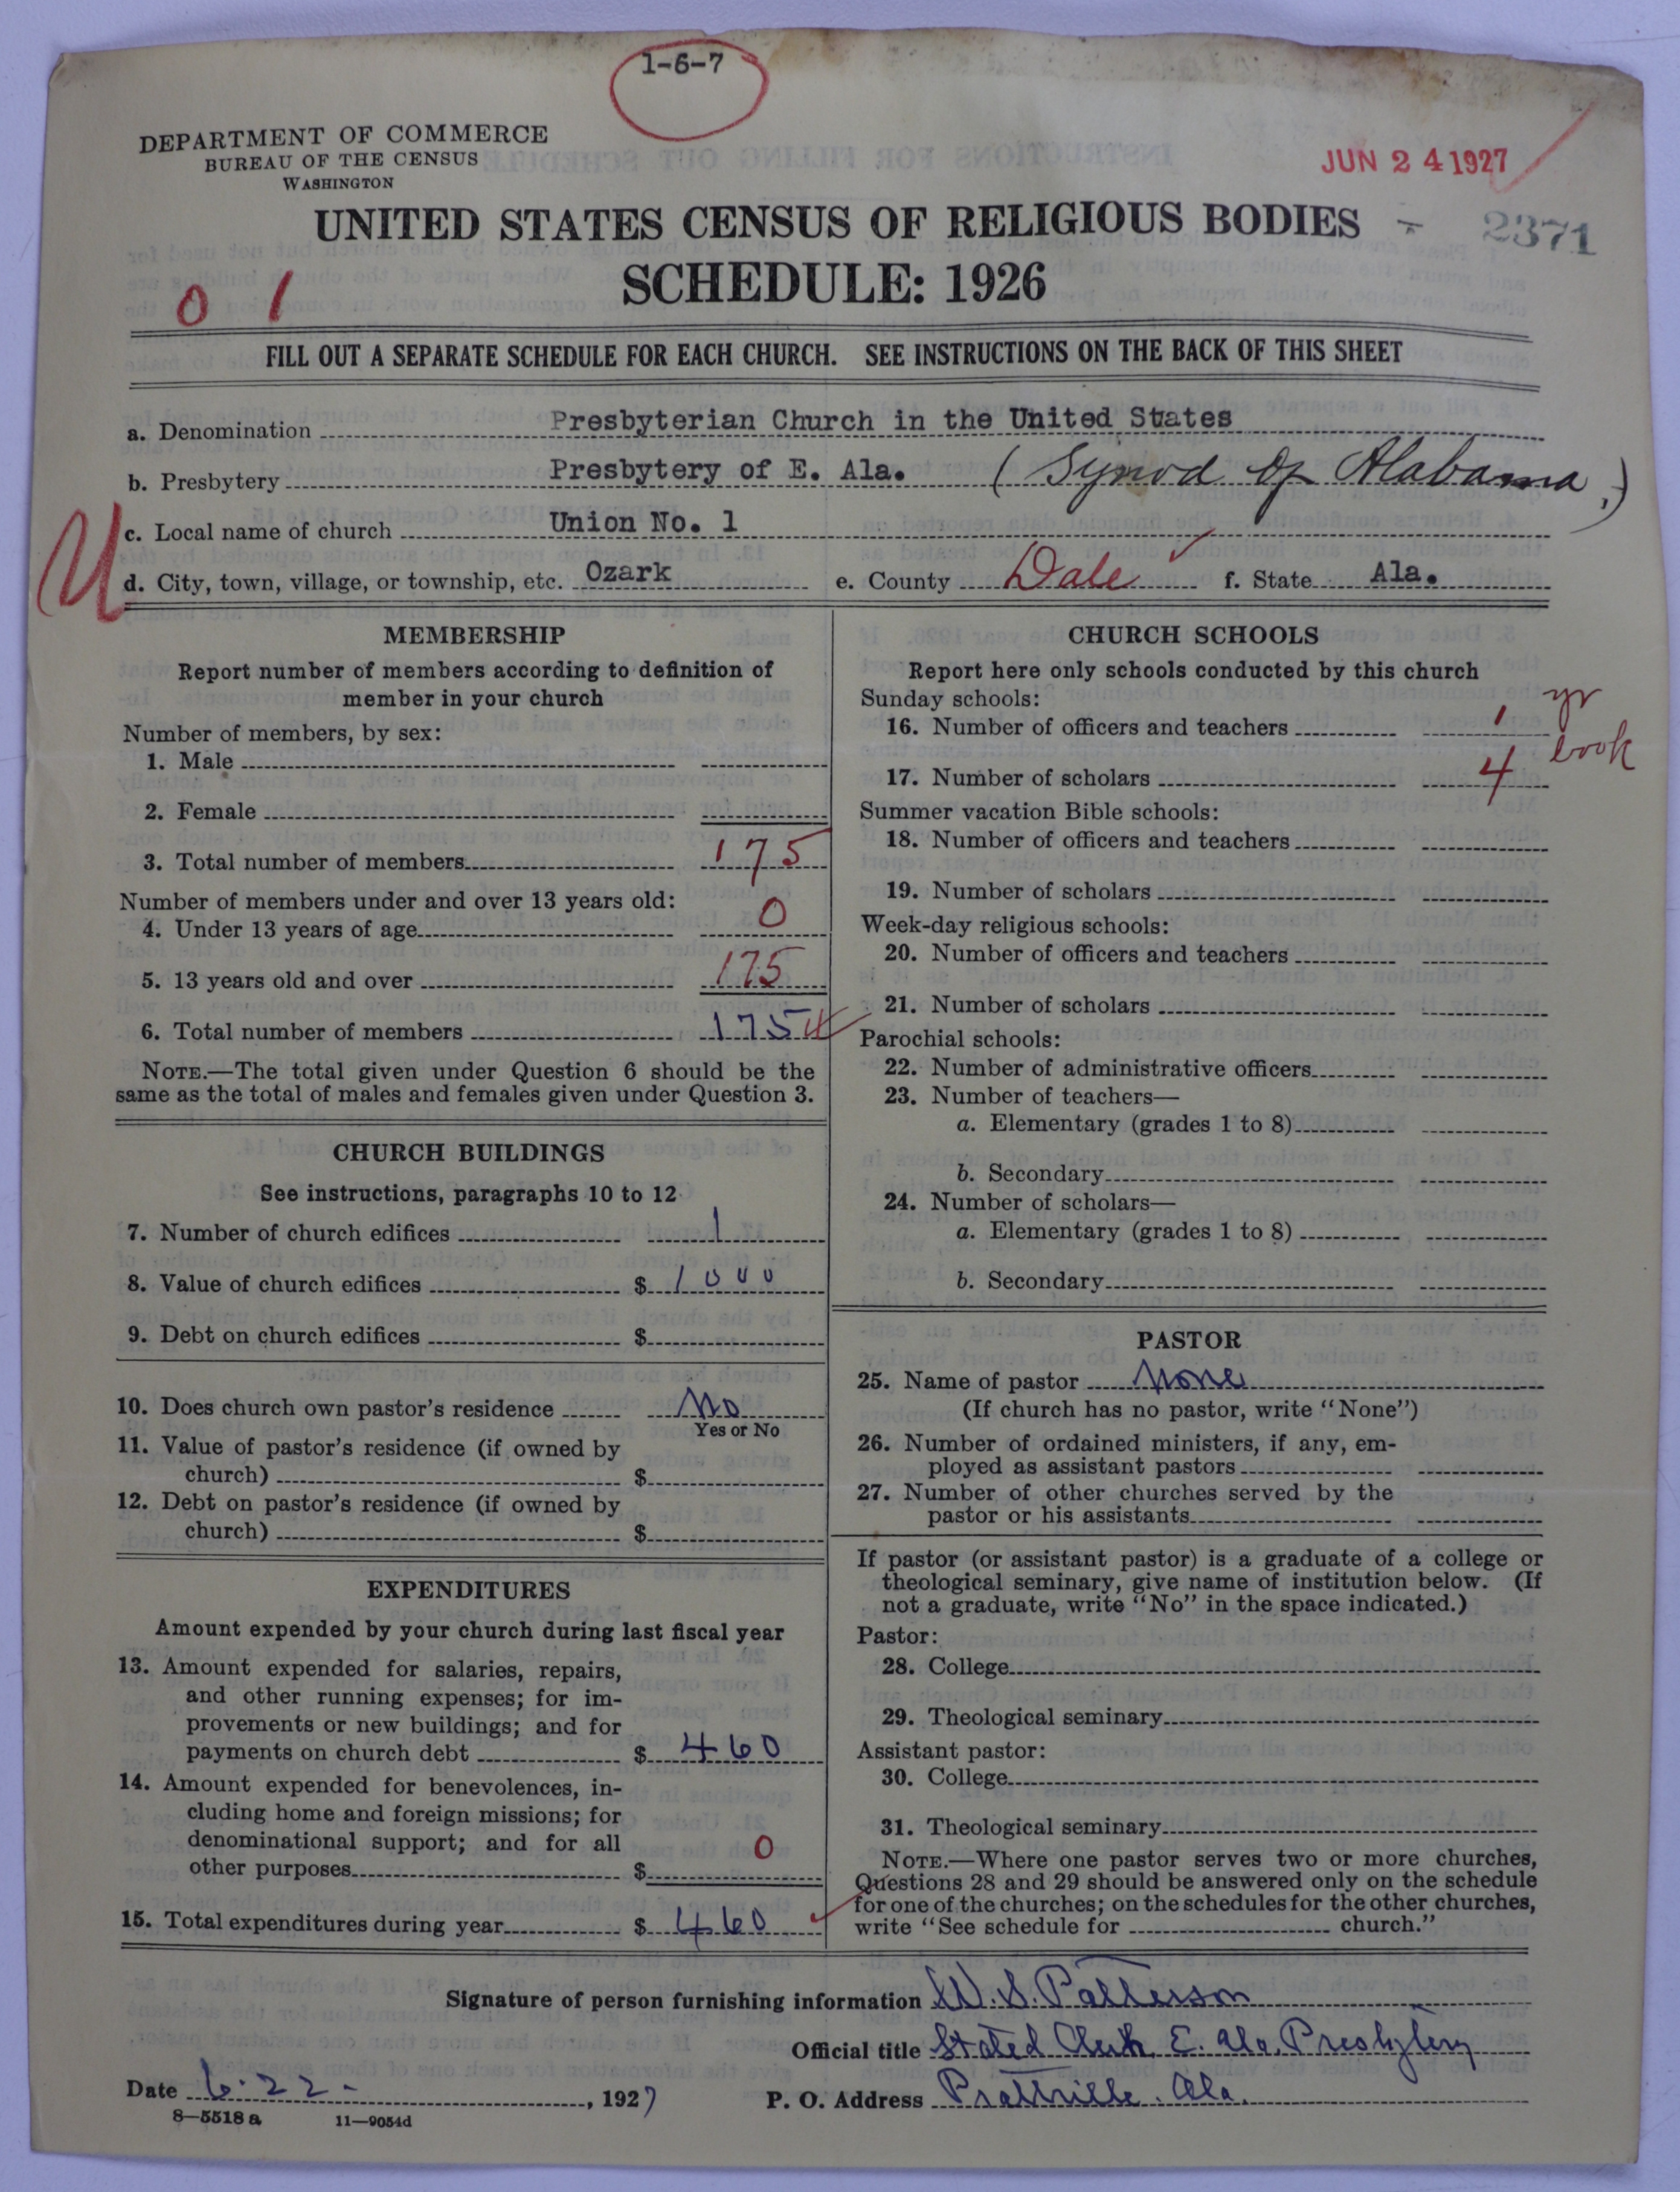 1-6-7
DEPARTMENT OF COMMERCE
BUREAU OF THE CENSUS
WASHINGTON
JUN 24 1927
UNITED STATES CENSUS OF RELIGIOUS BODIES
2371
SCHEDULE: 1926
0 1
FILL OUT A SEPARATE SCHEDULE FOR EACH CHURCH. SEE INSTRUCTIONS ON THE BACK OF THIS SHEET
a. Denomination Presbyterian Church in the United States
b. Presbytery Presbytery of E. Ala. (Synod of Alabama,)
c. Local name of church Union No. 1
U
d. City, town, village, or township, etc. Ozark e. County Dale f. State Ala.
MEMBERSHIP
Report number of members according to definition of
member in your church
Number of members, by sex:
1. Male
2. Female
3. Total number of members 175
Number of members under and over 13 years old:
4. Under 13 years of age 0
5. 13 years old and over 175
6. Total number of members 175
NOTE.—The total given under Question 6 should be the
same as the total of males and females given under Question 3.
CHURCH BUILDINGS
See instructions, paragraphs 10 to 12
7. Number of church edifices 1
8. Value of church edifices $ 1000
9. Debt on church edifices $
10. Does church own pastor's residence No
Yes or No
11. Value of pastor's residence (if owned by
church) $
12. Debt on pastor's residence (if owned by
church) $
EXPENDITURES
Amount expended by your church during last fiscal year
13. Amount expended for salaries, repairs,
and other running expenses; for im-
provements or new buildings; and for
payments on church debt $ 460
14. Amount expended for benevolences, in-
cluding home and foreign missions; for
denominational support; and for all
other purposes $ 0
15. Total expenditures during year $ 460
CHURCH SCHOOLS
Report here only schools conducted by this church
Sunday schools:
16. Number of officers and teachers 1 yr
book
17. Number of scholars 4
Summer vacation Bible schools:
18. Number of officers and teachers
19. Number of scholars
Week-day religious schools:
20. Number of officers and teachers
21. Number of scholars
Parochial schools:
22. Number of administrative officers
23. Number of teachers—
a. Elementary (grades 1 to 8)
b. Secondary
24. Number of scholars—
a. Elementary (grades 1 to 8)
b. Secondary
PASTOR
25. Name of pastor None
(If church has no pastor, write "None")
26. Number of ordained ministers, if any, em-
ployed as assistant pastors
27. Number of other churches served by the
pastor or his assistants
If pastor (or assistant pastor) is a graduate of a college or
theological seminary, give name of institution below. (If
not a graduate, write "No" in the space indicated.)
Pastor:
28. College
29. Theological seminary
Assistant pastor:
30. College
31. Theological seminary
NOTE.—Where one pastor serves two or more churches,
Questions 28 and 29 should be answered only on the schedule
for one of the churches; on the schedules for the other churches,
write "See schedule for church."
Signature of person furnishing information W. S. Patterson
Official title Stated Clerk E. Ala. Presbytery
Date 6-22-, 1927 P. O. Address Prattville. Ala.
8—5518a 11—9054d